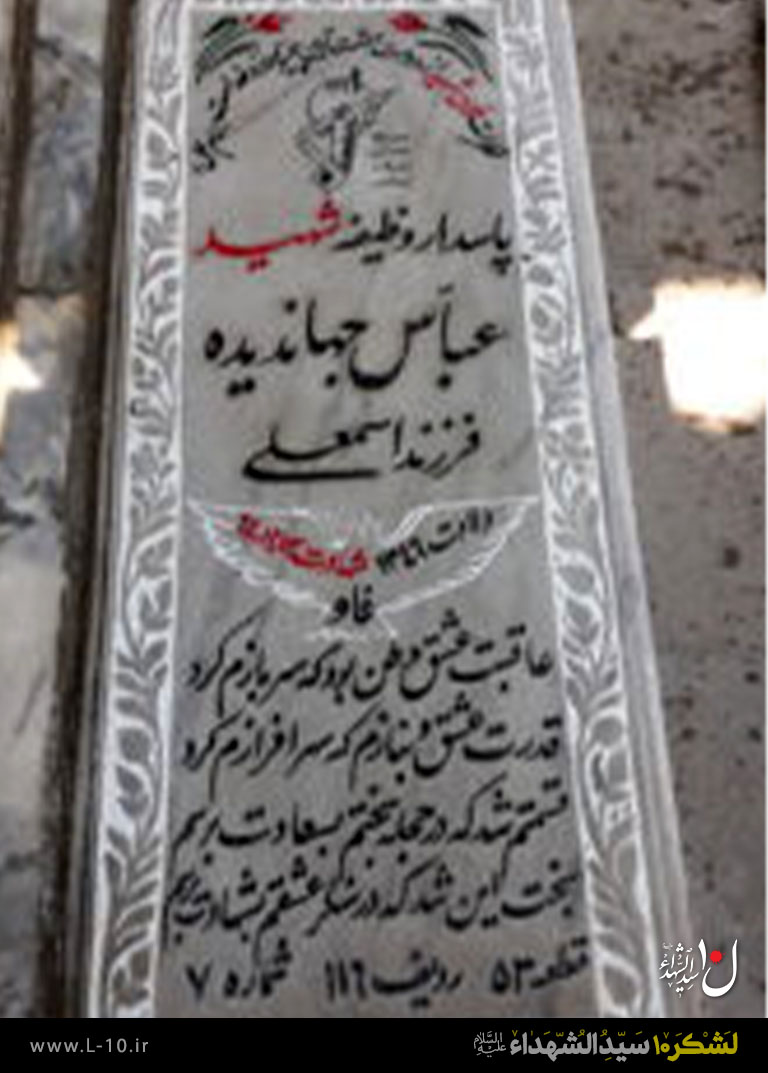 پاسدار وظیفه شهید
عباس جهاندیده
فرزند اسمعلی
ولادت ۱۳۴۶ شهادت
فاو
عاقبت عشق وطن بود که سربازم کرد
قدرت عشق و بنازم که سرافرازم کرد
قسمتم شد که در حجله بختم بسعادت برسم
بخت این شد که در سنگر عشقم بشهادت برسم
قطعه ۵۳ ردیف ۱۱۶ شماره ۷
ل۱۰ سیدالشهداء
لَشْکَرِ۱۰ سَیِّدِالشُّهَداء عَلَیْهِ السَّلام
www.L-10.ir